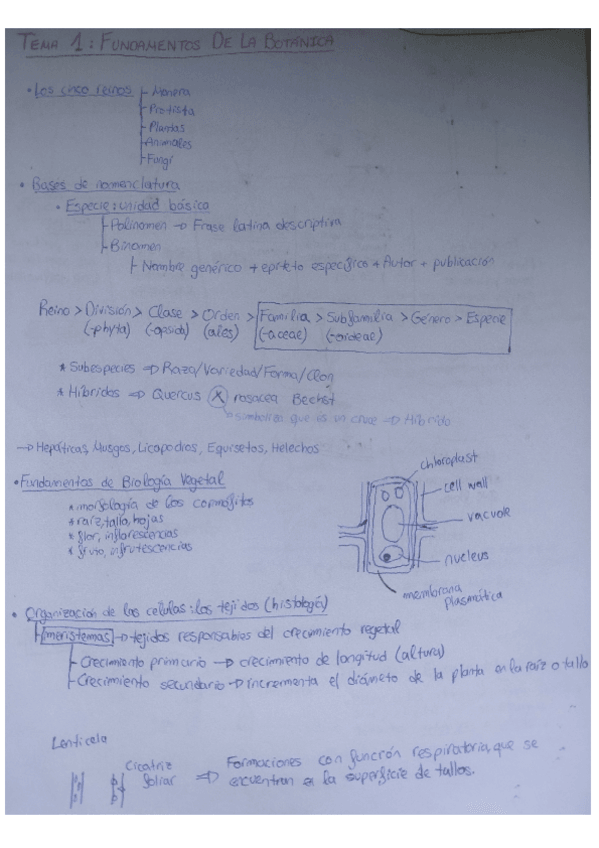 TEMA 1: FUNDAMENTOS DE LA BOTÁNICA
• Los cinco reinos
Monera
Protista
Plantas
Animales
Fungi
• Bases de nomenclatura
• Especie: unidad básica
Polinomen → Frase latina descriptiva
Binomen
Nombre genérico + epíteto específico + Autor + publicación
Reino > División > Clase > Orden > Familia > Subfamilia > Género > Especie
(-phyta) (-opsida) (ales) (-aceae) (-oideae)
* Subespecies ⇒ Raza/Variedad/Forma/Clon
* Híbridos ⇒ Quercus X rosacea Bechst
simboliza que es un cruce ⇒ Híbrido
→ Hepáticas, Musgos, Licopodios, Equisetos, Helechos
• Fundamentos de Biología Vegetal
* morfología de los cormófitos
* raíz, tallo, hojas
* flor, inflorescencias
* fruto, infrutescencias
chloroplast
cell wall
vacuole
nucleus
membrana
plasmática
• Organización de las células: los tejidos (histología)
meristemas → tejidos responsables del crecimiento vegetal
Crecimiento primario → crecimiento de longitud (altura)
Crecimiento secundario → incrementa el diámetro de la planta en la raíz o tallo
Lenticela
Cicatriz
foliar
⇒ Formaciones con función respiratoria, que se
encuentran en la superficie de tallos.